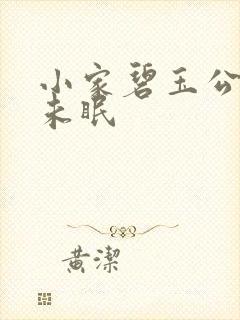 小家碧玉公
未眠
黄潔